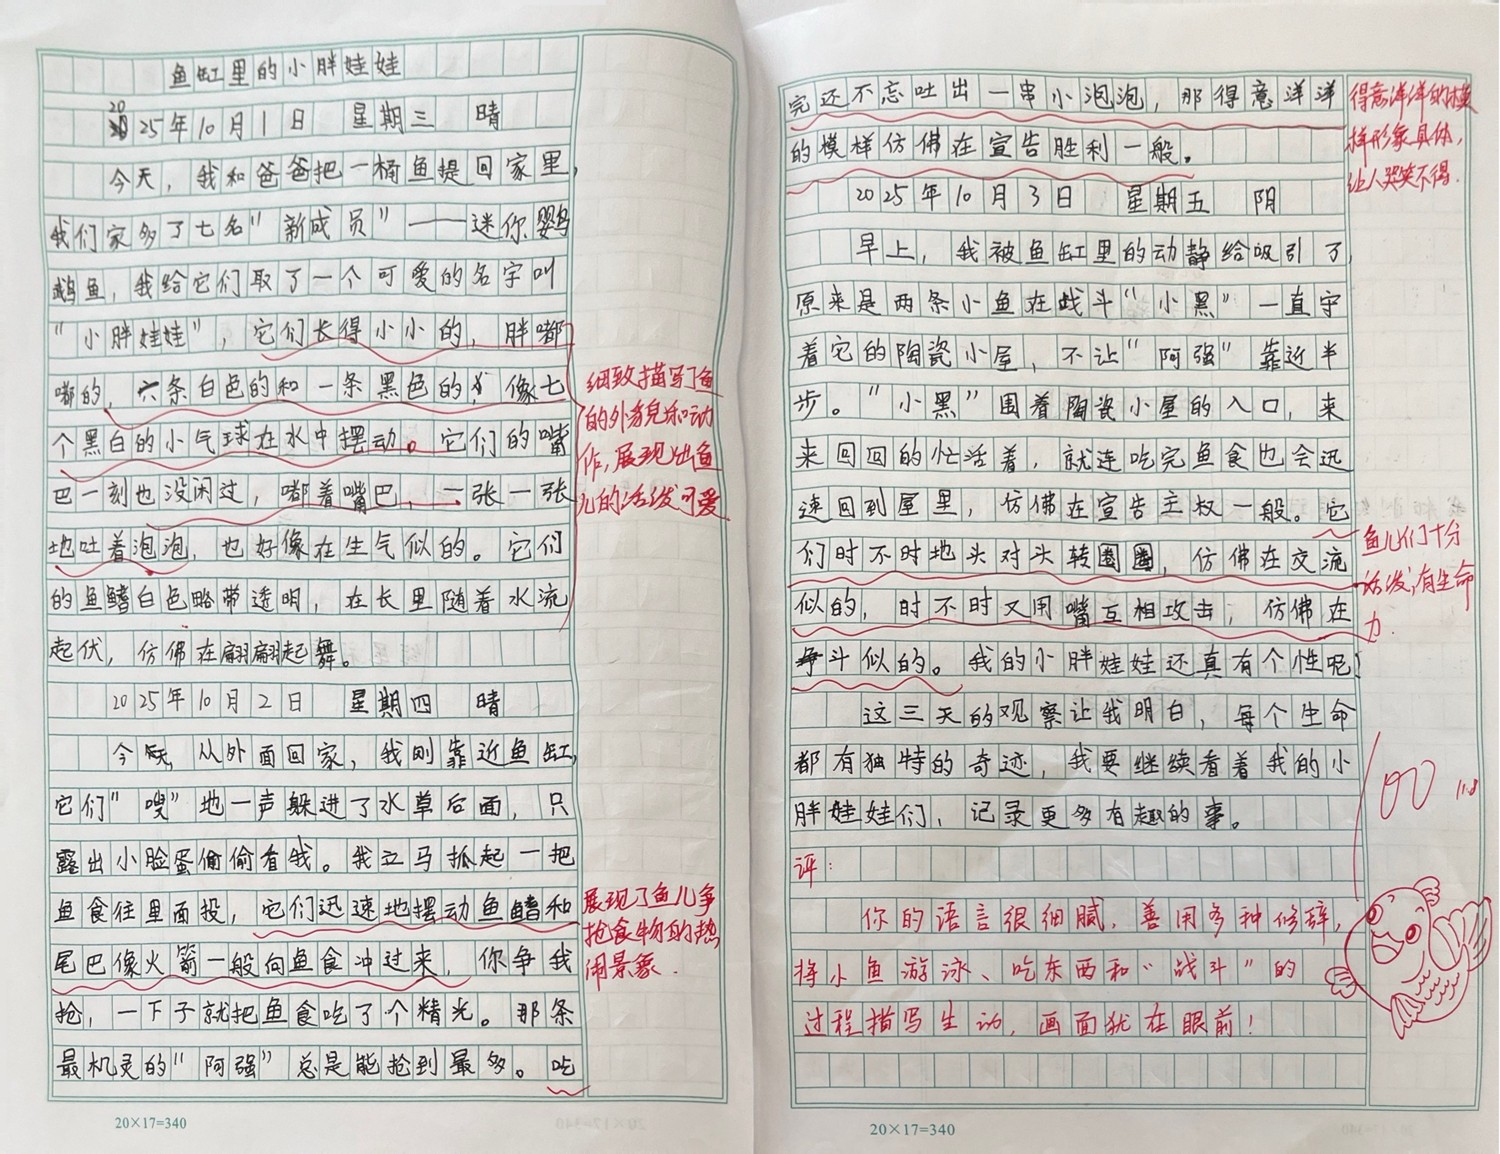 鱼缸里的小胖娃娃
2025年10月1日 星期三 晴
今天，我和爸爸把一桶鱼提回家里，
我们家多了七名“新成员”——迷你鹦
鹉鱼，我给它们取了一个可爱的名字叫
“小胖娃娃”，它们长得小小的，胖嘟
嘟的，六条白色的和一条黑色的，像七
个黑白的小气球在水中摆动。它们的嘴
巴一刻也没闲过，嘟着嘴巴，一张一张
地吐着泡泡，也好像在生气似的。它们
的鱼鳍白色略带透明，在长里随着水流
起伏，仿佛在翩翩起舞。
2025年10月2日 星期四 晴
今天，从外面回家，我刚靠近鱼缸，
它们“嗖”地一声躲进了水草后面，只
露出小脸蛋偷偷看我。我立马抓起一把
鱼食往里面投，它们迅速地摆动鱼鳍和
尾巴像火箭一般向鱼食冲过来，你争我
抢，一下子就把鱼食吃了个精光。那条
最机灵的“阿强”总是能抢到最多。吃
细致描写了鱼
的外貌和动
作，展现出鱼
儿的活泼可爱
展现了鱼儿争
抢食物的热
闹景象.
20×17=340
完还不忘吐出一串小泡泡，那得意洋洋
的模样仿佛在宣告胜利一般。
2025年10月3日 星期五 阴
早上，我被鱼缸里的动静给吸引了，
原来是两条小鱼在战斗“小黑”一直守
着它的陶瓷小屋，不让“阿强”靠近半
步。“小黑”围着陶瓷小屋的入口，来
来回回的忙活着，就连吃完鱼食也会迅
速回到屋里，仿佛在宣告主权一般。它
们时不时地头对头转圈圈，仿佛在交流
似的，时不时又用嘴互相攻击，仿佛在
争斗似的。我的小胖娃娃还真有个性呢！
这三天的观察让我明白，每个生命
都有独特的奇迹，我要继续看着我的小
胖娃娃们，记录更多有趣的事。
得意洋洋的模
样形象具体，
让人哭笑不得.
鱼儿们十分
活泼，有生命
力.
100
11.8
评：
你的语言很细腻，善用多种修辞，
将小鱼游泳、吃东西和“战斗”的
过程描写生动，画面犹在眼前！
20×17=340